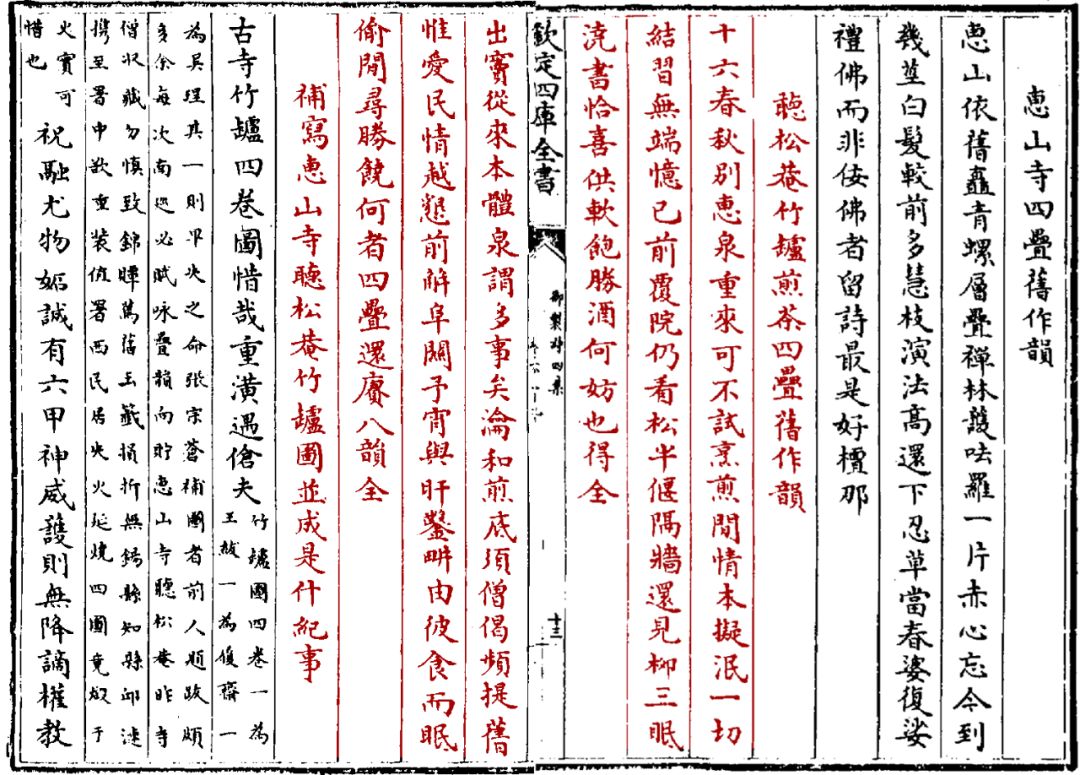 惠山寺四疊舊作韻
惠山依舊矗青螺層疊禪林護呿羅一片赤心忘今到
幾莖白髮較前多慧枝演法高還下忍草當春婆復娑
禮佛而非佞佛者留詩最是好檀那
聽松菴竹罏煎茶四疊舊作韻
十六春秋別惠泉重來可不試烹煎閒情本擬泯一切
結習無端憶已前覆院仍看松半偃隔牆還見柳三眠
澆書恰喜供軟飽勝酒何妨也得全
欽定四庫全書
御製詩四集
十三
出竇從來本體泉謂多事矣瀹和煎底須僧偈頻提舊
惟愛民情越懇前解阜關予宵與旰鑿畊由彼食而眠
偷閒尋勝饒何者四疊還賡八韻全
補寫惠山寺聽松菴竹罏圖並成是什紀事
古寺竹罏四卷圖惜哉重潢遇傖夫竹罏圖四卷一為
王紱一為履齋一
為吳珵其一則早失之命張宗蒼補圖者前人題跋頗
多余每次南巡必賦咏疊韻向貯惠山寺聽松菴昨寺
僧收藏勿慎致錦贉蔫舊玉籤損折無錫縣知縣邱漣
携至署中欲重裝值署西民居失火延燒四圖竟燬于
火實可
惜也祝融尤物妬誠有六甲神威護則無降謫權教